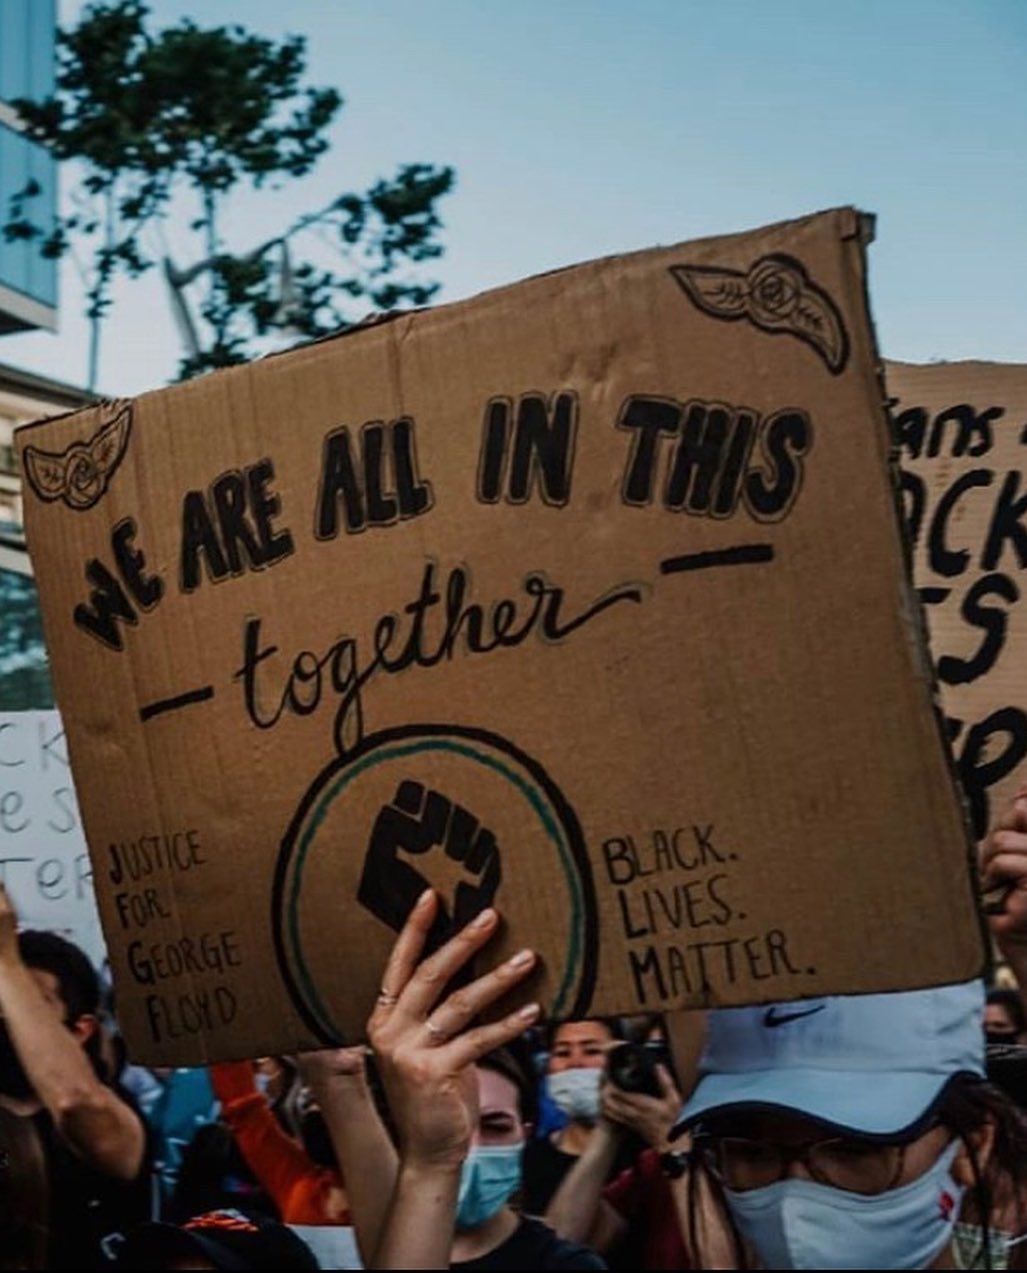 WE ARE ALL IN THIS
together
JUSTICE
FOR
GEORGE
FLOYD
BLACK.
LIVES.
MATTER.